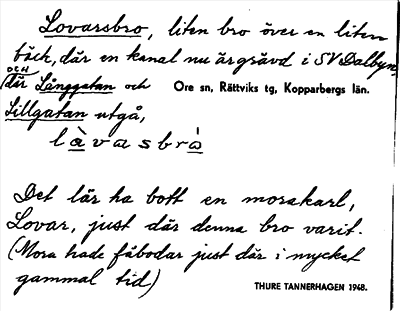 Lovarsbro, liten bro över en liten
bäck, där en kanal nu är grävd i SV Dalbyn,
OCH
där Långgatan och Ore sn, Rättviks tg, Kopparbergs län.
Lillgatan utgå,
låvasbrå
Det lär ha bott en morakarl,
Lovar, just där denna bro varit.
(Mora hade fäbodar just där i mycket
gammal tid)
THURE TANNERHAGEN 1948.